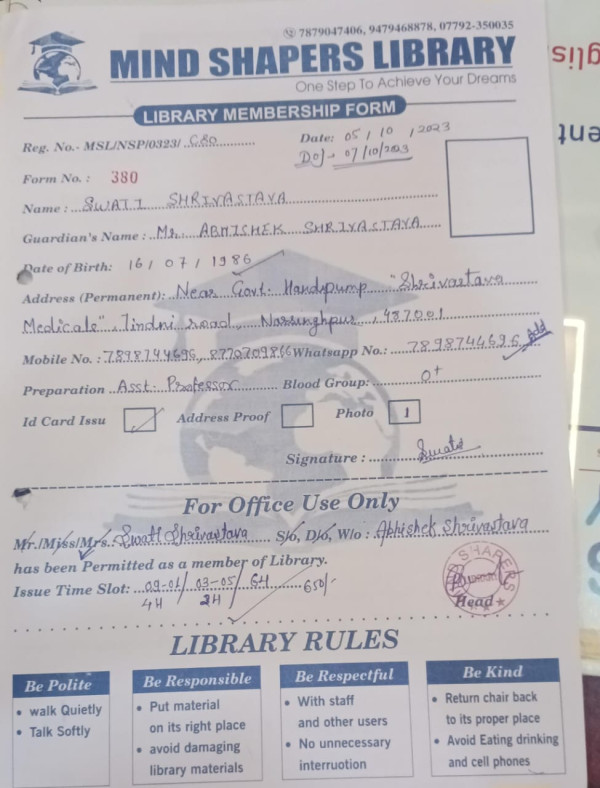 7879047406, 9479468878, 07792-350035
MIND SHAPERS LIBRARY
One Step To Achieve Your Dreams
LIBRARY MEMBERSHIP FORM
Reg. No.- MSL/NSP/0323/ C80 Date: 05 / 10 / 2023
DOJ - 07/10/2023
Form No. : 380
Name : SWATI SHRIVASTAVA
Guardian's Name : Mr. ABHISHEK SHRIVASTAVA
Date of Birth: 16 / 07 / 1986
Address (Permanent): Near Govt. Handpump "Shrivastava
Medicals", Jindni road, Narsinghpur, 487001
Mobile No. : 7898744696, Whatsapp No.: 7898744696 Add
Preparation Asst. Professor Blood Group: O+
Id Card Issu Address Proof Photo 1
Signature : Swati
For Office Use Only
Mr./Miss/Mrs. Swati Shrivastava S/o, D/o, W/o : Abhishek Shrivastava
has been Permitted as a member of Library.
Issue Time Slot: 09-01/ 03-05/ 6H 650/-
4H 2H
SHAPERS
Head
LIBRARY RULES
Be Polite
• walk Quietly
• Talk Softly
Be Responsible
• Put material
on its right place
• avoid damaging
library materials
Be Respectful
• With staff
and other users
• No unnecessary
interruotion
Be Kind
• Return chair back
to its proper place
• Avoid Eating drinking
and cell phones